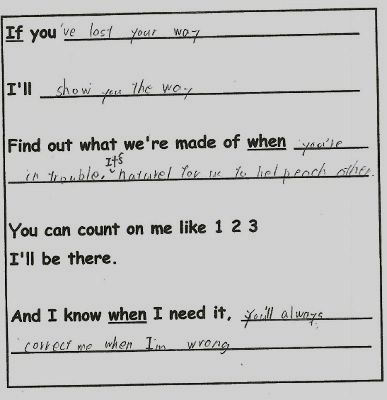 If you've lost your way
I'll show you the way
Find out what we're made of when you're
in trouble. It's natural for us to help each other.
You can count on me like 1 2 3
I'll be there.
And I know when I need it, you'll always
correct me when I'm wrong